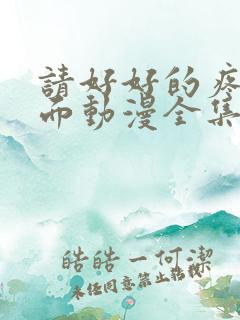 請好好的疼
而動漫全集
皓皓一何潔
未任同意禁止轉載